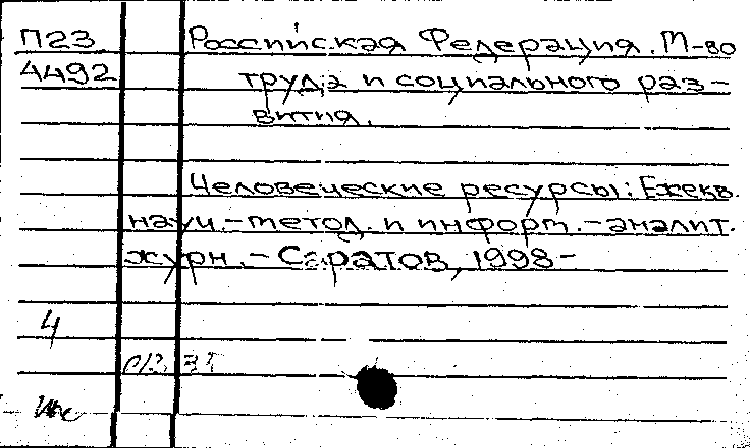 П23 Российская Федерация. М-во
4492 труда и социального раз-
вития.
Человеческие ресурсы: Ежекв.
науч.-метод. и информ.-аналит.
журн. - Саратов, 1998-
4